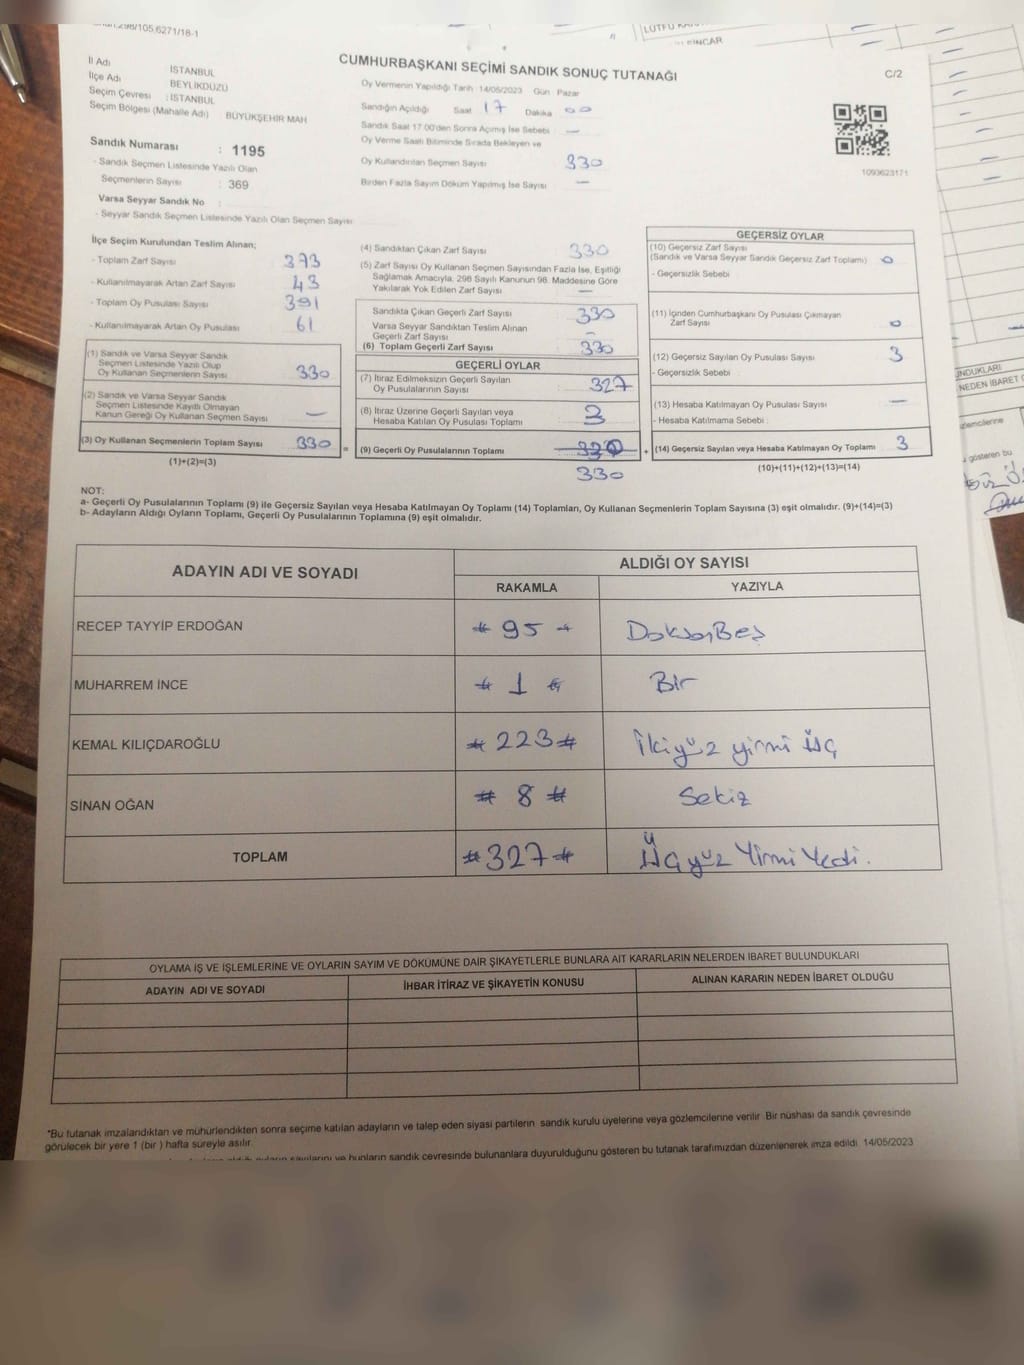 298/105,6271/18-1
İl Adı İSTANBUL
İlçe Adı BEYLİKDÜZÜ
Seçim Çevresi : İSTANBUL
Seçim Bölgesi (Mahalle Adı) BÜYÜKŞEHİR MAH
Sandık Numarası : 1195
- Sandık Seçmen Listesinde Yazılı Olan
Seçmenlerin Sayısı : 369
Varsa Seyyar Sandık No :
- Seyyar Sandık Seçmen Listesinde Yazılı Olan Seçmen Sayısı
CUMHURBAŞKANI SEÇİMİ SANDIK SONUÇ TUTANAĞI
C/2
Oy Vermenin Yapıldığı Tarih 14/05/2023 Gün Pazar
Sandığın Açıldığı Saat 17 Dakika 00
Sandık Saat 17.00'den Sonra Açılmış İse Sebebi —
Oy Verme Saati Bitiminde Sırada Bekleyen ve
Oy Kullandırılan Seçmen Sayısı 330
Birden Fazla Sayım Döküm Yapılmış İse Sayısı —
1093623171
İlçe Seçim Kurulundan Teslim Alınan;
- Toplam Zarf Sayısı 373
- Kullanılmayarak Artan Zarf Sayısı 43
- Toplam Oy Pusulası Sayısı 391
- Kullanılmayarak Artan Oy Pusulası 61
(1) Sandık ve Varsa Seyyar Sandık
Seçmen Listesinde Yazılı Olup
Oy Kullanan Seçmenlerin Sayısı 330
(2) Sandık ve Varsa Seyyar Sandık
Seçmen Listesinde Kayıtlı Olmayan
Kanun Gereği Oy Kullanan Seçmen Sayısı —
(3) Oy Kullanan Seçmenlerin Toplam Sayısı 330 =
(1)+(2)=(3)
(4) Sandıktan Çıkan Zarf Sayısı 330
(5) Zarf Sayısı Oy Kullanan Seçmen Sayısından Fazla İse, Eşitliği
Sağlamak Amacıyla, 298 Sayılı Kanunun 98. Maddesine Göre
Yakılarak Yok Edilen Zarf Sayısı —
Sandıkta Çıkan Geçerli Zarf Sayısı 330
Varsa Seyyar Sandıktan Teslim Alınan
Geçerli Zarf Sayısı —
(6) Toplam Geçerli Zarf Sayısı 330
GEÇERLİ OYLAR
(7) İtiraz Edilmeksizin Geçerli Sayılan
Oy Pusulalarının Sayısı 327
(8) İtiraz Üzerine Geçerli Sayılan veya
Hesaba Katılan Oy Pusulası Toplamı 3
(9) Geçerli Oy Pusulalarının Toplamı 330 +
330
GEÇERSİZ OYLAR
(10) Geçersiz Zarf Sayısı
(Sandık ve Varsa Seyyar Sandık Geçersiz Zarf Toplamı) 0
- Geçersizlik Sebebi
(11) İçinden Cumhurbaşkanı Oy Pusulası Çıkmayan
Zarf Sayısı 0
(12) Geçersiz Sayılan Oy Pusulası Sayısı 3
- Geçersizlik Sebebi
(13) Hesaba Katılmayan Oy Pusulası Sayısı —
- Hesaba Katılmama Sebebi :
(14) Geçersiz Sayılan veya Hesaba Katılmayan Oy Toplamı 3
(10)+(11)+(12)+(13)=(14)
NOT:
a- Geçerli Oy Pusulalarının Toplamı (9) ile Geçersiz Sayılan veya Hesaba Katılmayan Oy Toplamı (14) Toplamları, Oy Kullanan Seçmenlerin Toplam Sayısına (3) eşit olmalıdır. (9)+(14)=(3)
b- Adayların Aldığı Oyların Toplamı, Geçerli Oy Pusulalarının Toplamına (9) eşit olmalıdır.
ADAYIN ADI VE SOYADI ALDIĞI OY SAYISI
RAKAMLA YAZIYLA
RECEP TAYYİP ERDOĞAN # 95 # DoksanBeş
MUHARREM İNCE # 1 # Bir
KEMAL KILIÇDAROĞLU # 223 # İkiyüz yirmi üç
SİNAN OĞAN # 8 # Sekiz
TOPLAM # 327 # Üçyüz Yirmi Yedi.
OYLAMA İŞ VE İŞLEMLERİNE VE OYLARIN SAYIM VE DÖKÜMÜNE DAİR ŞİKAYETLERLE BUNLARA AİT KARARLARIN NELERDEN İBARET BULUNDUKLARI
ADAYIN ADI VE SOYADI İHBAR İTİRAZ VE ŞİKAYETİN KONUSU ALINAN KARARIN NEDEN İBARET OLDUĞU
*Bu tutanak imzalandıktan ve mühürlendikten sonra seçime katılan adayların ve talep eden siyasi partilerin sandık kurulu üyelerine veya gözlemcilerine verilir. Bir nüshası da sandık çevresinde
görülecek bir yere 1 (bir ) hafta süreyle asılır.
sayılarını ve bunların sandık çevresinde bulunanlara duyurulduğunu gösteren bu tutanak tarafımızdan düzenlenerek imza edildi. 14/05/2023
UNDUKLARI
NEDEN İBARET
gösteren bu